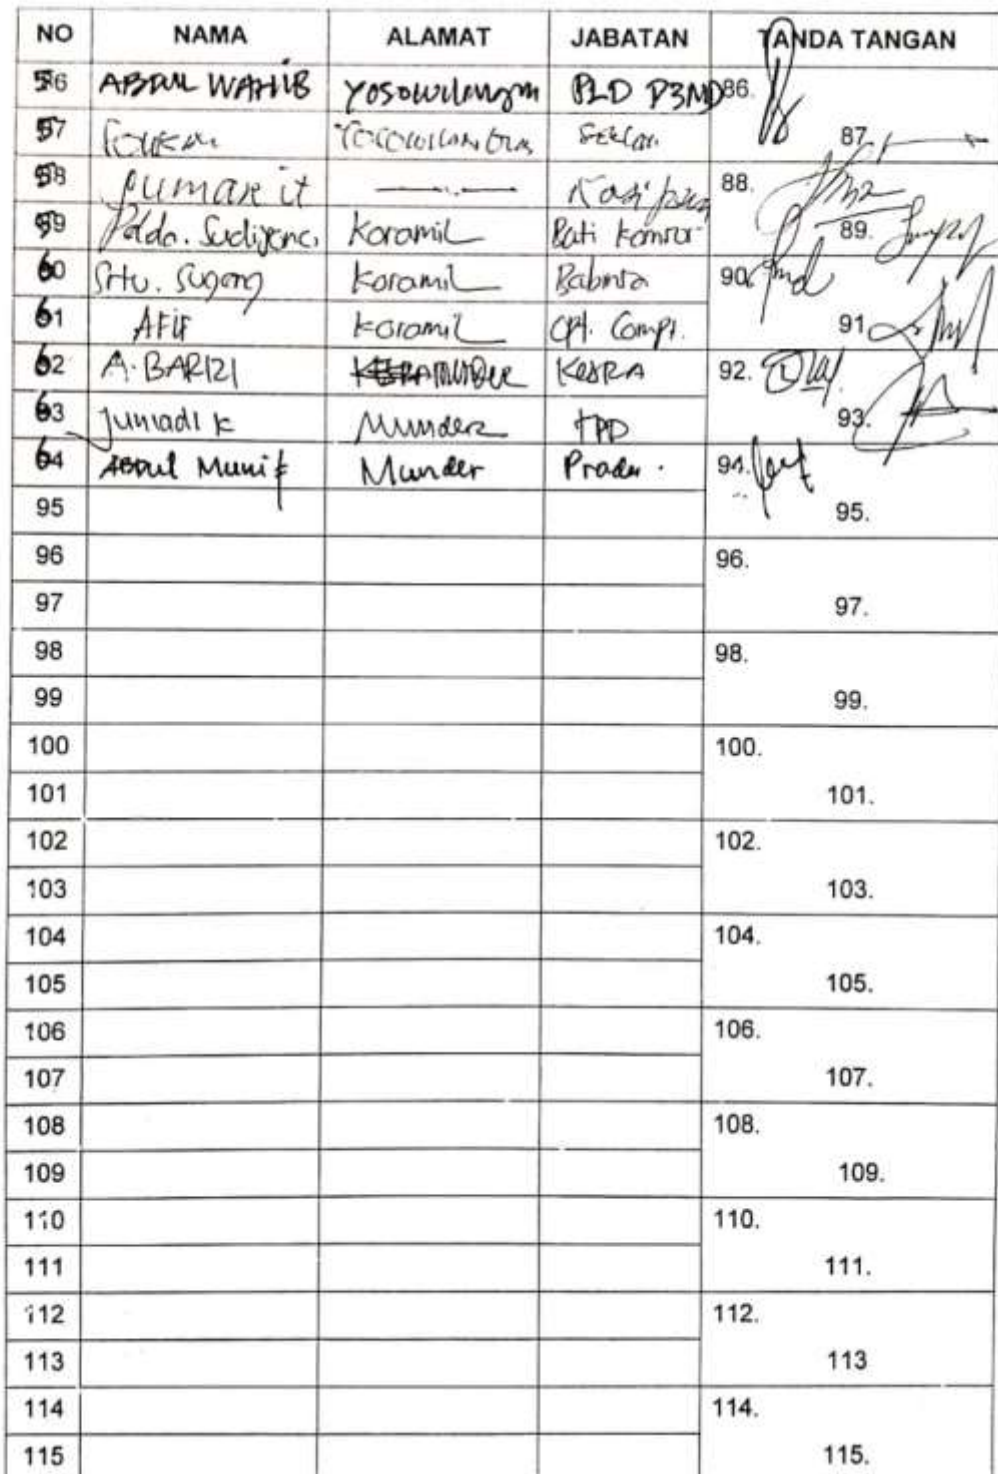 NO NAMA ALAMAT JABATAN TANDA TANGAN
56 ABDUL WAHIB Yosowilangun PLD P3MD 86.
57 87.
58 Kasi 88.
59 Pelda. Koramil Bati 89.
60 Sugeng Koramil Babinsa 90.
61 AFIF Koramil 91
62 A. BARIZI KESRA 92.
63 Jumadi K Munder TPD 93.
64 ABDUL Munif Munder 94.
95 95.
96 96.
97 97.
98 98.
99 99.
100 100.
101 101.
102 102.
103 103.
104 104.
105 105.
106 106.
107 107.
108 108.
109 109.
110 110.
111 111.
112 112.
113 113
114 114.
115 115.